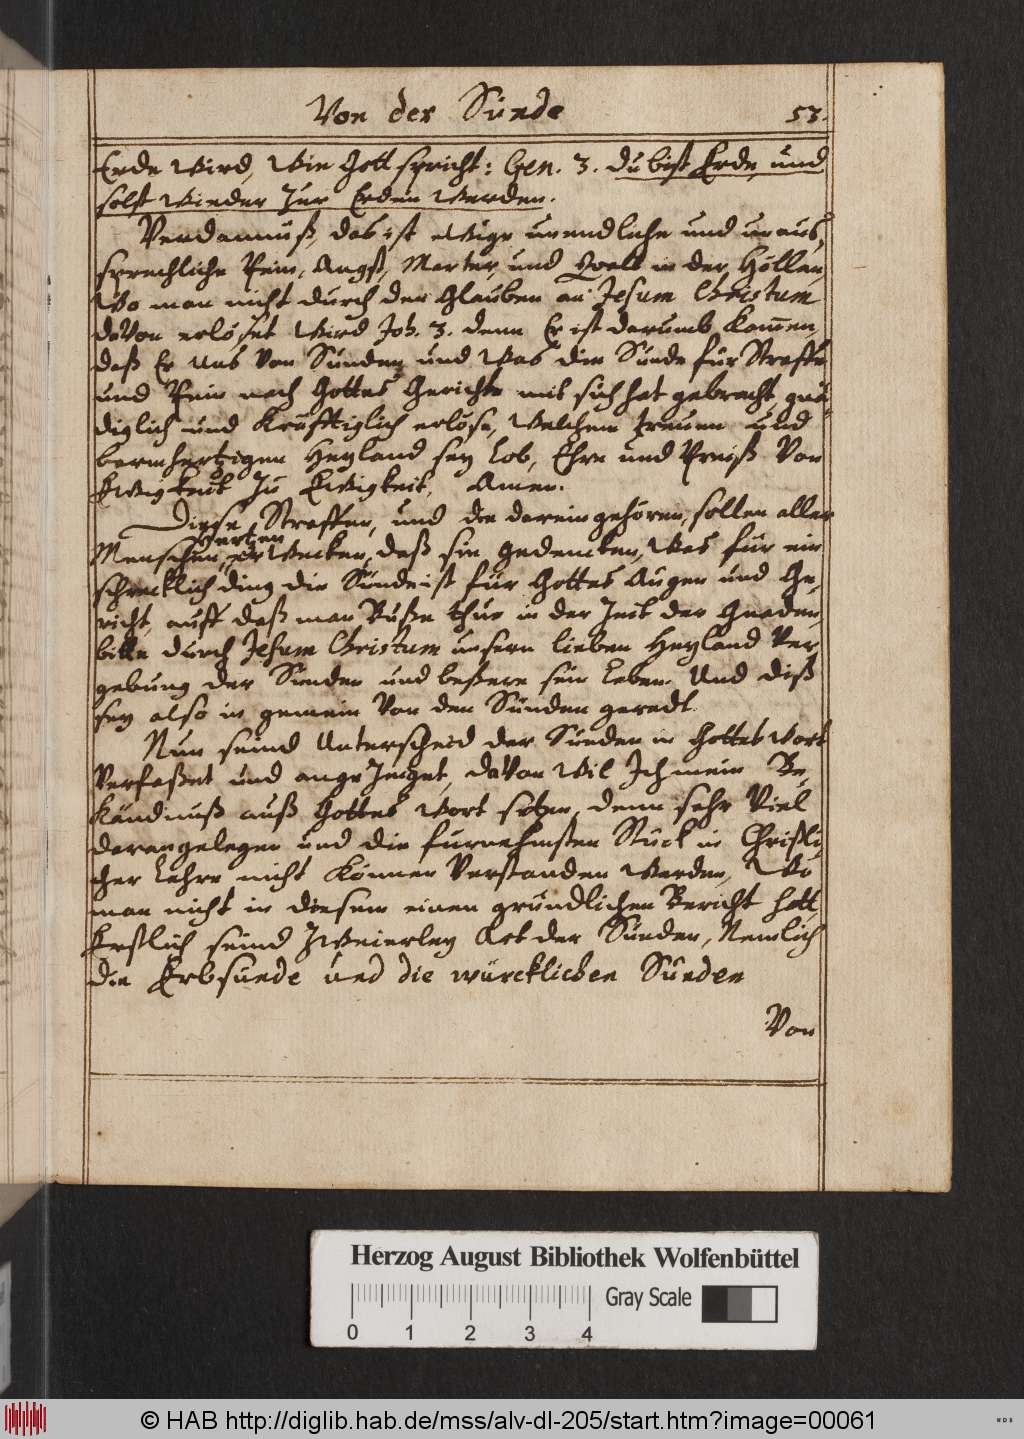 Von der Sünde 53.
Erde wird, wie Gott spricht: Gen. 3. du bist Erde, und
solst wieder zur Erden werden.
Verdamnüß, das ist ewige unendliche und unaus,
sprechliche Pein, Angst, Marter, und Quall in der Höllen,
Wo man nicht durch den Glauben an Jesum Christum
davon erlöset wird Joh. 3. denn Er ist darumb kom̄en,
daß Er uns von Sünden, und was die Sünde für Straffe
und Pein nach Gottes Gerichte mit sich hat gebracht, gnä-
diglich und kräfftiglich erlöse, welchem treuen und
barmhertzigen Heyland sey Lob, Ehre und Preiß von
Ewigkeit zu Ewigkeit, Amen.
Diese Straffen, und die darein gehören, sollen aller
Menschen, hertzen erwecken, daß sie gedencken, was für ein
schrecklich ding die Sünde ist für Gottes Augen und Ge,
richt, auff daß man Buße thue in der Zeit der Gnaden,
bitte durch Jesum Christum unsern lieben Heyland Ver
gebung der Sünden und beßere sein Leben. Und diß
sey also in gemein von den Sünden geredt.
Nun seind Unterscheid der Sünden in Gottes Wort
verfaßet und angezeiget, davon wil Ich mein Be,
kändnüß auß Gottes Wort setzen, denn sehr viel
daran gelegen und die fürnehmsten Stück in Christli,
cher Lehre nicht können verstanden werden, Wo
man nicht in diesem einen gründlichen Bericht hatt,
Erstlich seind zweierley Art der Sünden, Nemlich
die Erbsünde und die würcklichen Sünden
Von
Herzog August Bibliothek Wolfenbüttel
0 1 2 3 4 Gray Scale
© HAB http://diglib.hab.de/mss/alv-dl-205/start.htm?image=00061
WDB